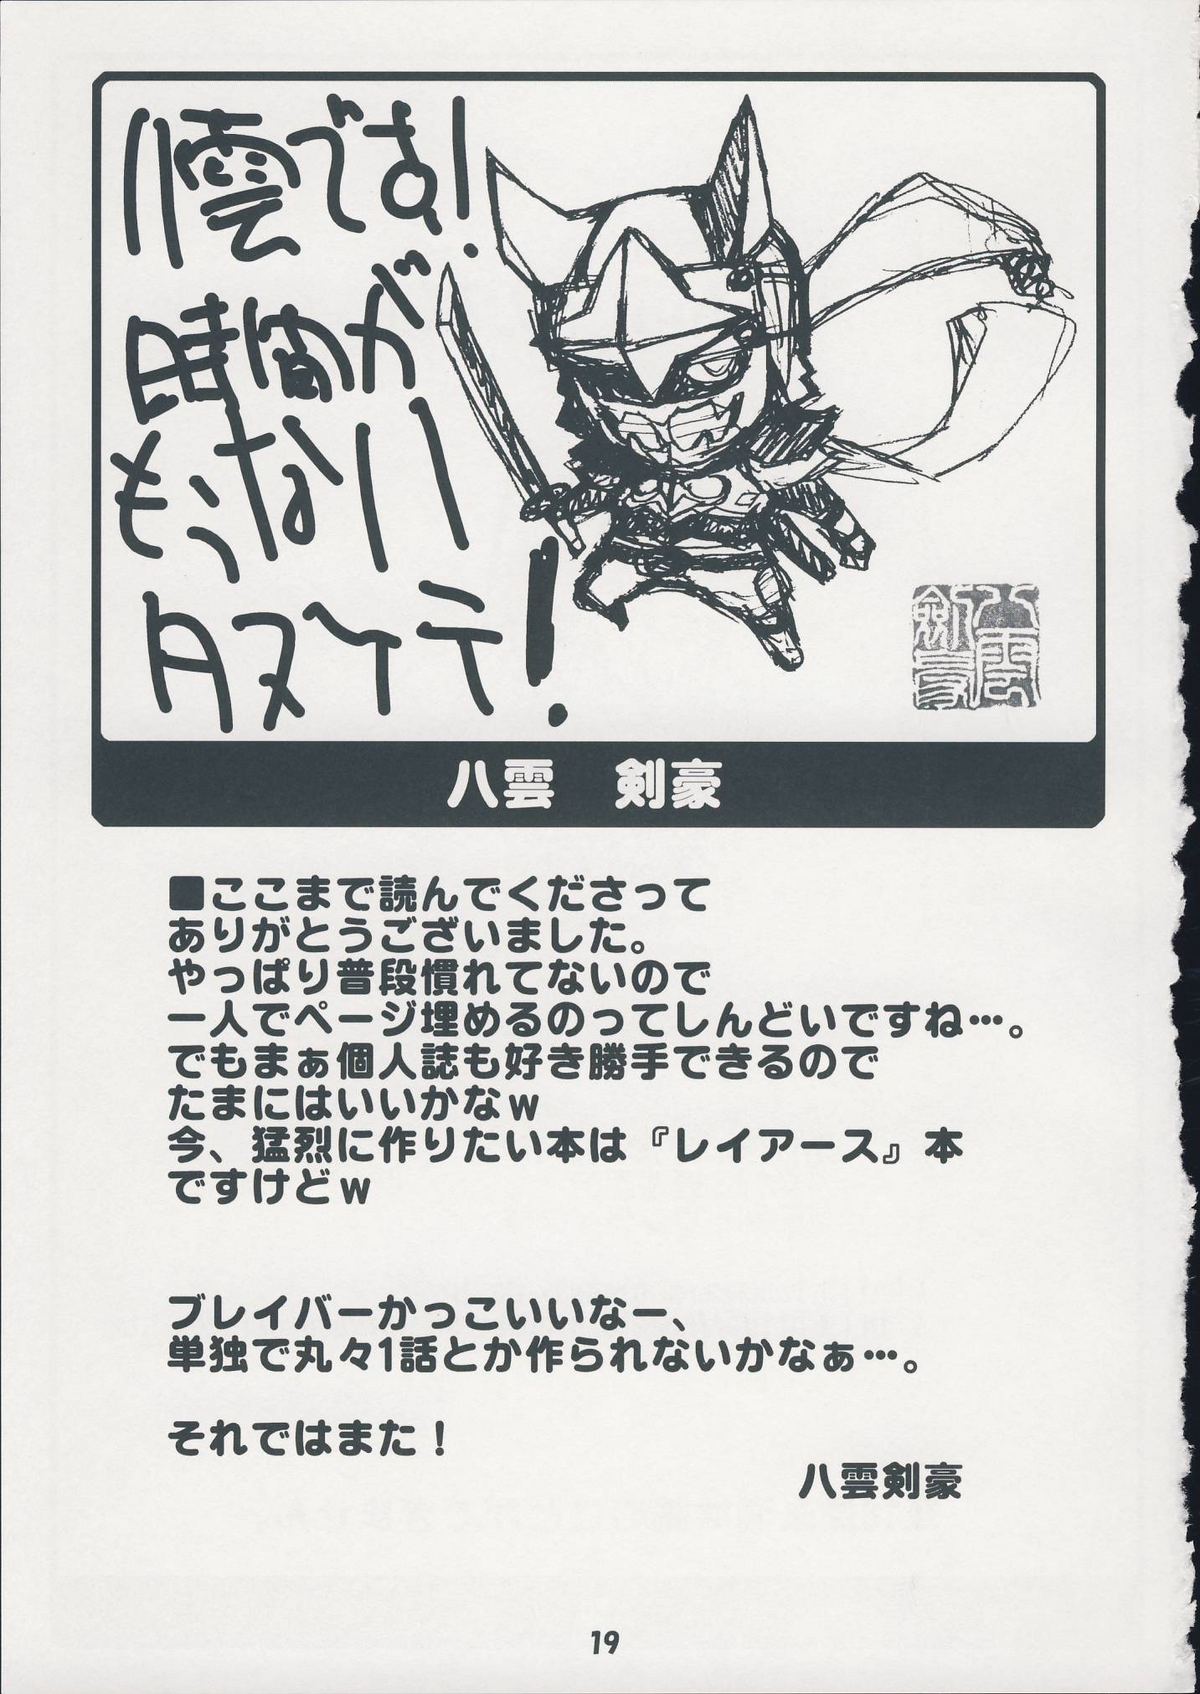 八雲です!
時間が
もうない!!
タスケテ!
八雲剣豪
八雲　剣豪
■ここまで読んでくださって
ありがとうございました。
やっぱり普段慣れてないので
一人でページ埋めるのってしんどいですね…。
でもまぁ個人誌も好き勝手できるので
たまにはいいかなｗ
今、猛烈に作りたい本は『レイアース』本
ですけどｗ
ブレイバーかっこいいなー、
単独で丸々1話とか作られないかなぁ…。
それではまた！
八雲剣豪
19